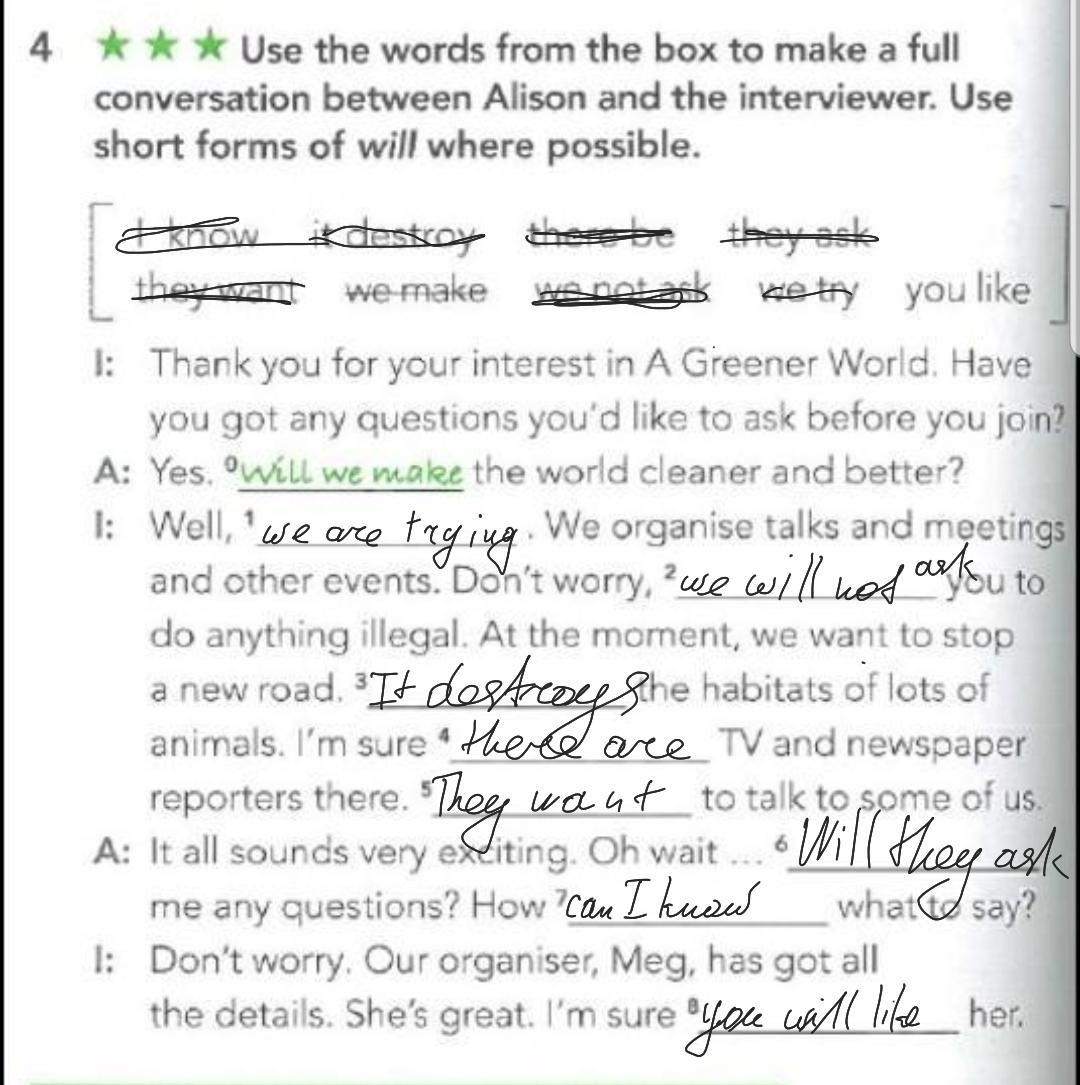 4 ★ ★ ★ Use the words from the box to make a full
conversation between Alison and the interviewer. Use
short forms of will where possible.
I know it destroy there be they ask
they want we make we not ask we try you like
I: Thank you for your interest in A Greener World. Have
you got any questions you'd like to ask before you join?
A: Yes. ⁰Will we make the world cleaner and better?
I: Well, ¹we are trying. We organise talks and meetings
and other events. Don't worry, ²we will not ask you to
do anything illegal. At the moment, we want to stop
a new road. ³It destroys the habitats of lots of
animals. I'm sure ⁴there are TV and newspaper
reporters there. ⁵They want to talk to some of us.
A: It all sounds very exciting. Oh wait ... ⁶Will they ask
me any questions? How ⁷can I know what to say?
I: Don't worry. Our organiser, Meg, has got all
the details. She's great. I'm sure ⁸you will like her.